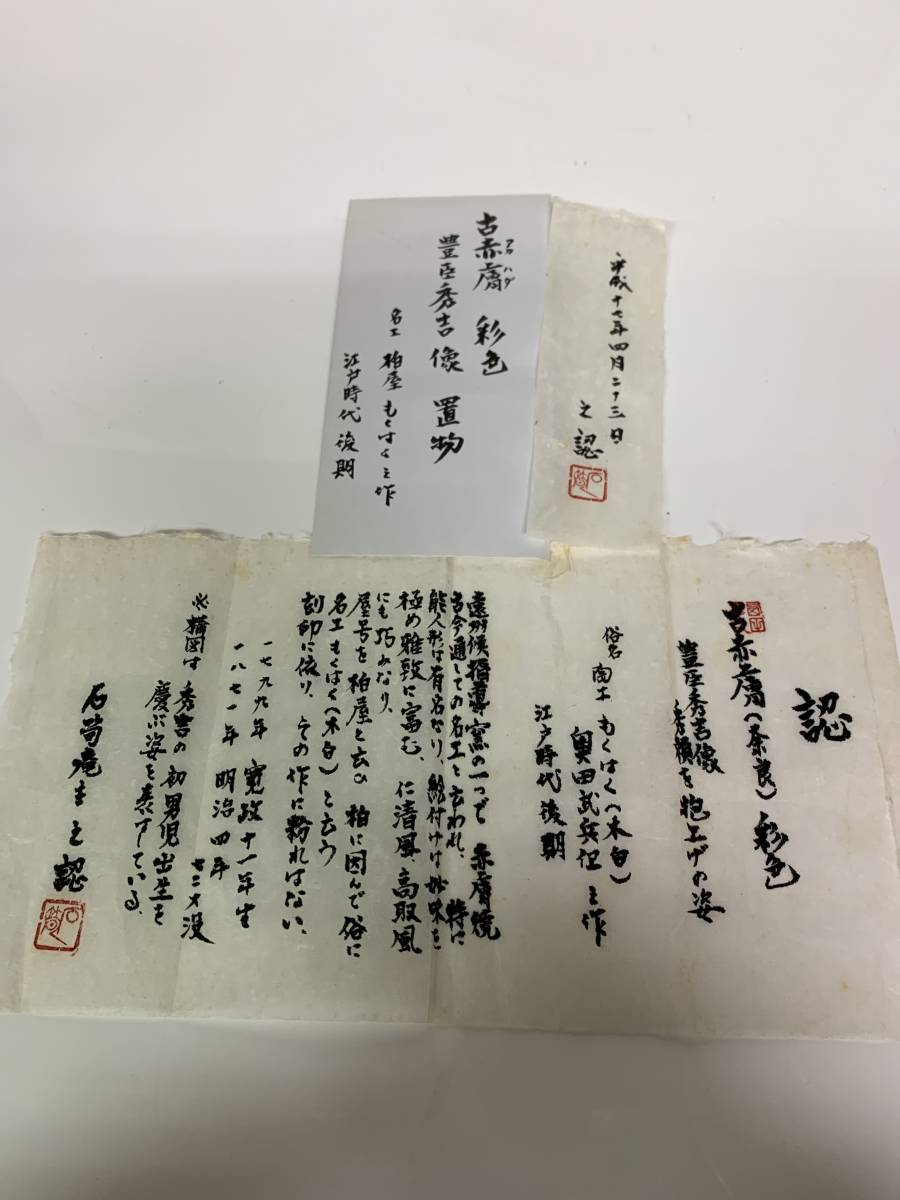 古赤膚 彩色
アカハダ
豊臣秀吉像 置物
名工 柏屋 もくはく之作
江戸時代後期
平成十七年四月二十三日
之認
認
古赤膚(奈良)彩色
豊臣秀吉像
秀頼を抱上げの姿
俗名 陶工 もくはく(木白)
奥田武兵衛 之作
江戸時代後期
遠州候指導窯の一つで 赤膚焼
古今通しての名工と云われ、特に
能人形は有名なり、絵付けは妙味を
極め雅致に富む、仁清風、高取風
にも巧みなり、
屋号を柏屋と云ひ 柏に因んで俗に
名工もくはく(木白)と云う
刻印に依り、その作に紛れはない、
一七九九年 寛政十一年生
一八七一年 明治四年
七二才没
構図は 秀吉の初男児出生を
慶ぶ姿を表している、
之認